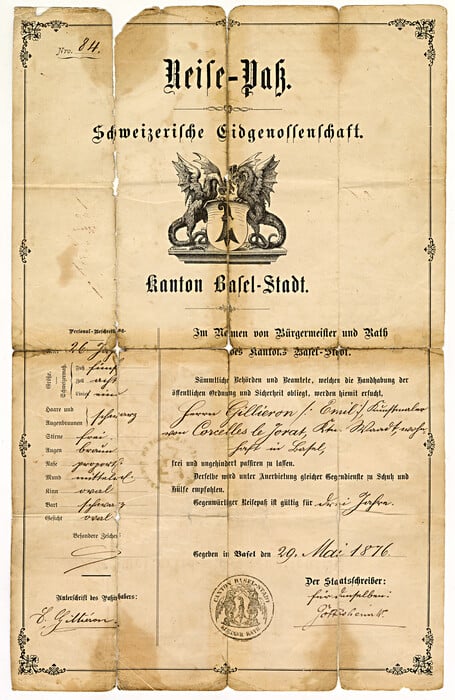 Nro. 84.
Reise-Paß.
Schweizerische Eidgenossenschaft.
Kanton Basel-Stadt.
Personal-Beschreibung.
26 Jahr
Größe. Schweizermaß.
fünf
acht
ein
Haare und Augenbraunen schwarz
Stirne frei
Augen braun
Nase proport.
Mund mittel
Kinn oval
Bart schwarz
Gesicht oval
Besondere Zeichen
Unterschrift des Paßinhabers:
E. Gilliéron.
Im Namen von Bürgermeister und Rath
des Kantons Basel-Stadt.
Sämmtliche Behörden und Beamtete, welchen die Handhabung der
öffentlichen Ordnung und Sicherheit obliegt, werden hiemit ersucht,
Herrn Gilliéron (: Emil:) Kunstmaler
von Corcelles le Jorat, Ktn. Waadt, wohn-
haft in Basel,
frei und ungehindert passiren zu lassen.
Derselbe wird unter Anerbietung gleicher Gegendienste zu Schutz und
Hülfe empfohlen.
Gegenwärtiger Reisepaß ist gültig für drei Jahre.
Gegeben in Basel den 29. Mai 1876
Der Staatsschreiber:
für denselben:
KANTON BASEL-STADT
KLEINER RATH